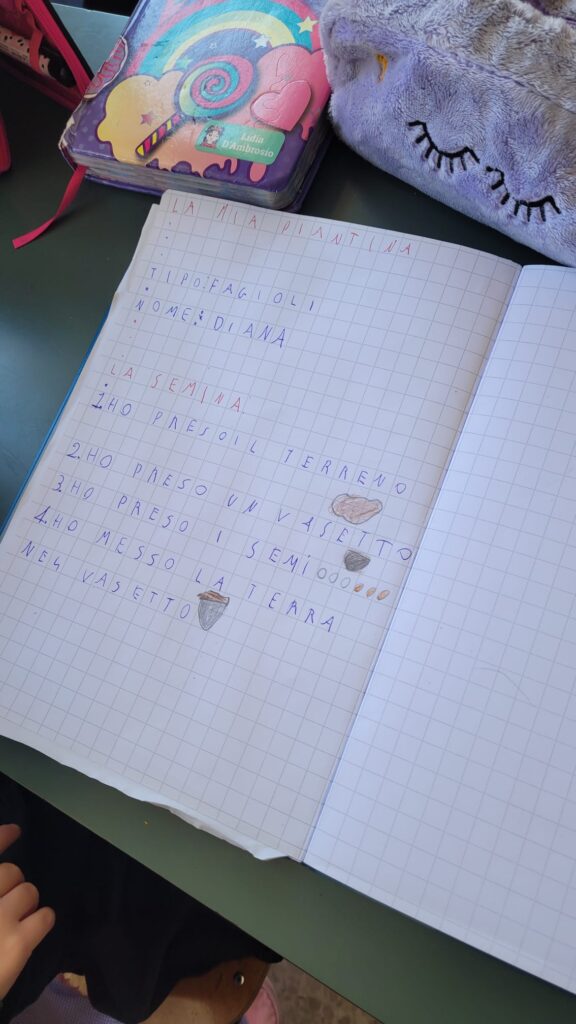 Lidia
D'Ambrosio
LA MIA PIANTINA
TIPO: FAGIOLI
NOME: DIANA
LA SEMINA
1. HO PRESO IL TERRENO
2. HO PRESO UN VASETTO
3. HO PRESO I SEMI
4. HO MESSO LA TERRA
NEL VASETTO